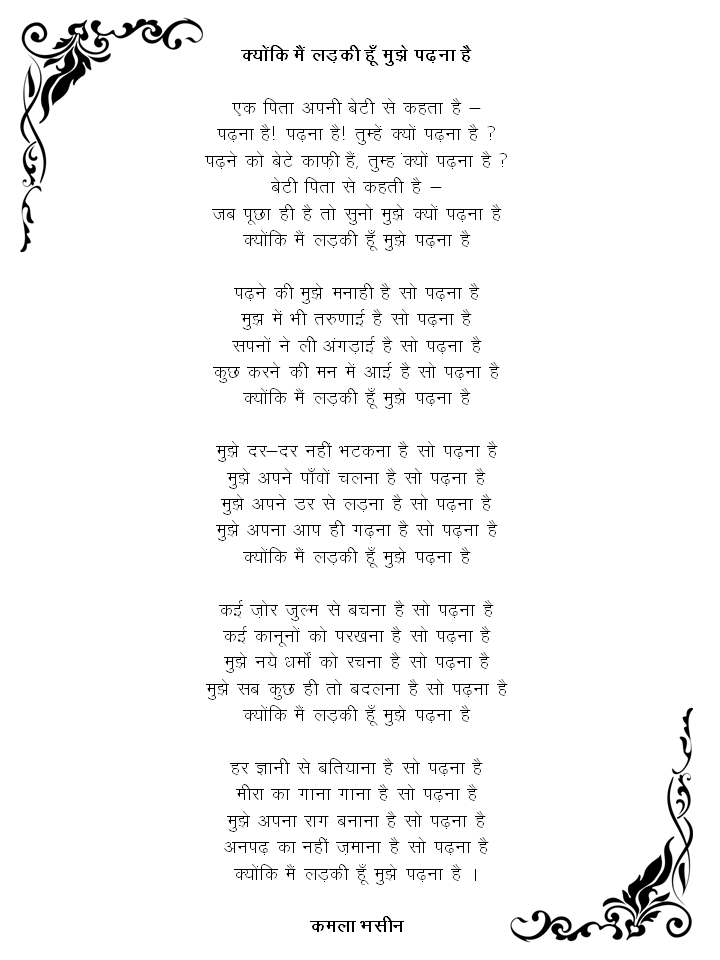 क्योंकि मैं लड़की हूँ मुझे पढ़ना है
एक पिता अपनी बेटी से कहता है –
पढ़ना है! पढ़ना है! तुम्हें क्यों पढ़ना है ?
पढ़ने को बेटे काफ़ी हैं, तुम्ह ंक्यों पढ़ना है ?
बेटी पिता से कहती है –
जब पूछा ही है तो सुनो मुझे क्यों पढ़ना है
क्योंकि मैं लड़की हूँ मुझे पढ़ना है
पढ़ने की मुझे मनाही है सो पढ़ना है
मुझ में भी तरुणाई है सो पढ़ना है
सपनों ने ली अंगड़ाई है सो पढ़ना है
कुछ करने की मन में आई है सो पढ़ना है
क्योंकि मैं लड़की हूँ मुझे पढ़ना है
मुझे दर–दर नहीं भटकना है सो पढ़ना है
मुझे अपने पाँवों चलना है सो पढ़ना है
मुझे अपने डर से लड़ना है सो पढ़ना है
मुझे अपना आप ही गढ़ना है सो पढ़ना है
क्योंकि मैं लड़की हूँ मुझे पढ़ना है
कई ज़ोर जुल्म से बचना है सो पढ़ना है
कई कानूनों को परखना है सो पढ़ना है
मुझे नये धर्मों को रचना है सो पढ़ना है
मुझे सब कुछ ही तो बदलना है सो पढ़ना है
क्योंकि मैं लड़की हूँ मुझे पढ़ना है
हर ज्ञानी से बतियाना है सो पढ़ना है
मीरा का गाना गाना है सो पढ़ना है
मुझे अपना राग बनाना है सो पढ़ना है
अनपढ़ का नहीं ज़माना है सो पढ़ना है
क्योंकि मैं लड़की हूँ मुझे पढ़ना है ।
कमला भसीन